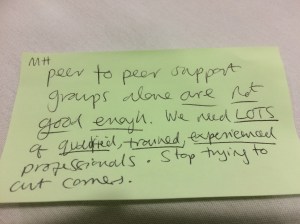 MH
peer to peer support
groups alone are not
good enough. We need LOTS
of qualified, trained, experienced
professionals. Stop trying to
cut corners.